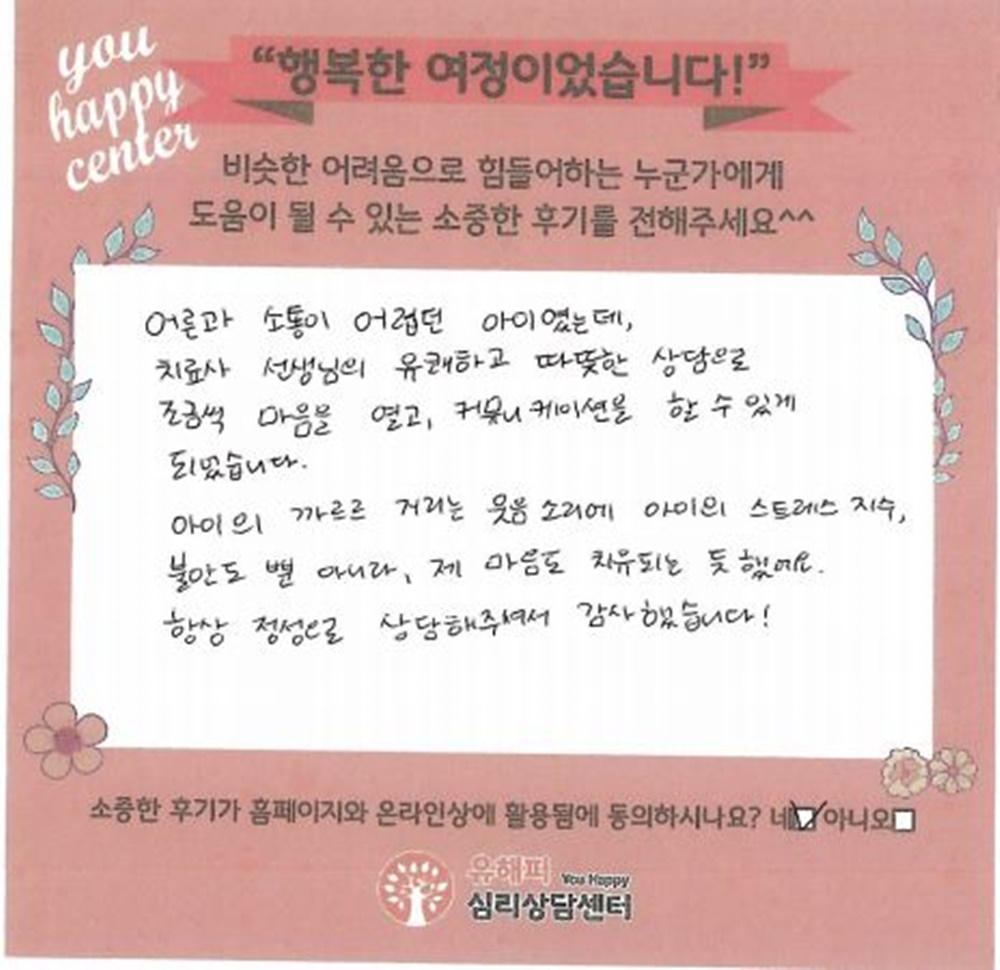 you
happy
center
“행복한 여정이었습니다!”
비슷한 어려움으로 힘들어하는 누군가에게
도움이 될 수 있는 소중한 후기를 전해주세요^^
어른과 소통이 어렵던 아이였는데,
치료사 선생님의 유쾌하고 따뜻한 상담으로
조금씩 마음을 열고, 커뮤니케이션을 할 수 있게
되었습니다.
아이의 까르르 거리는 웃음 소리에 아이의 스트레스 지수,
불안도 뿐 아니라, 제 마음도 치유되는 듯 했어요.
항상 정성으로 상담해주셔서 감사했습니다!
소중한 후기가 홈페이지와 온라인상에 활용됨에 동의하시나요? 네 아니오
유해피 You Happy
심리상담센터